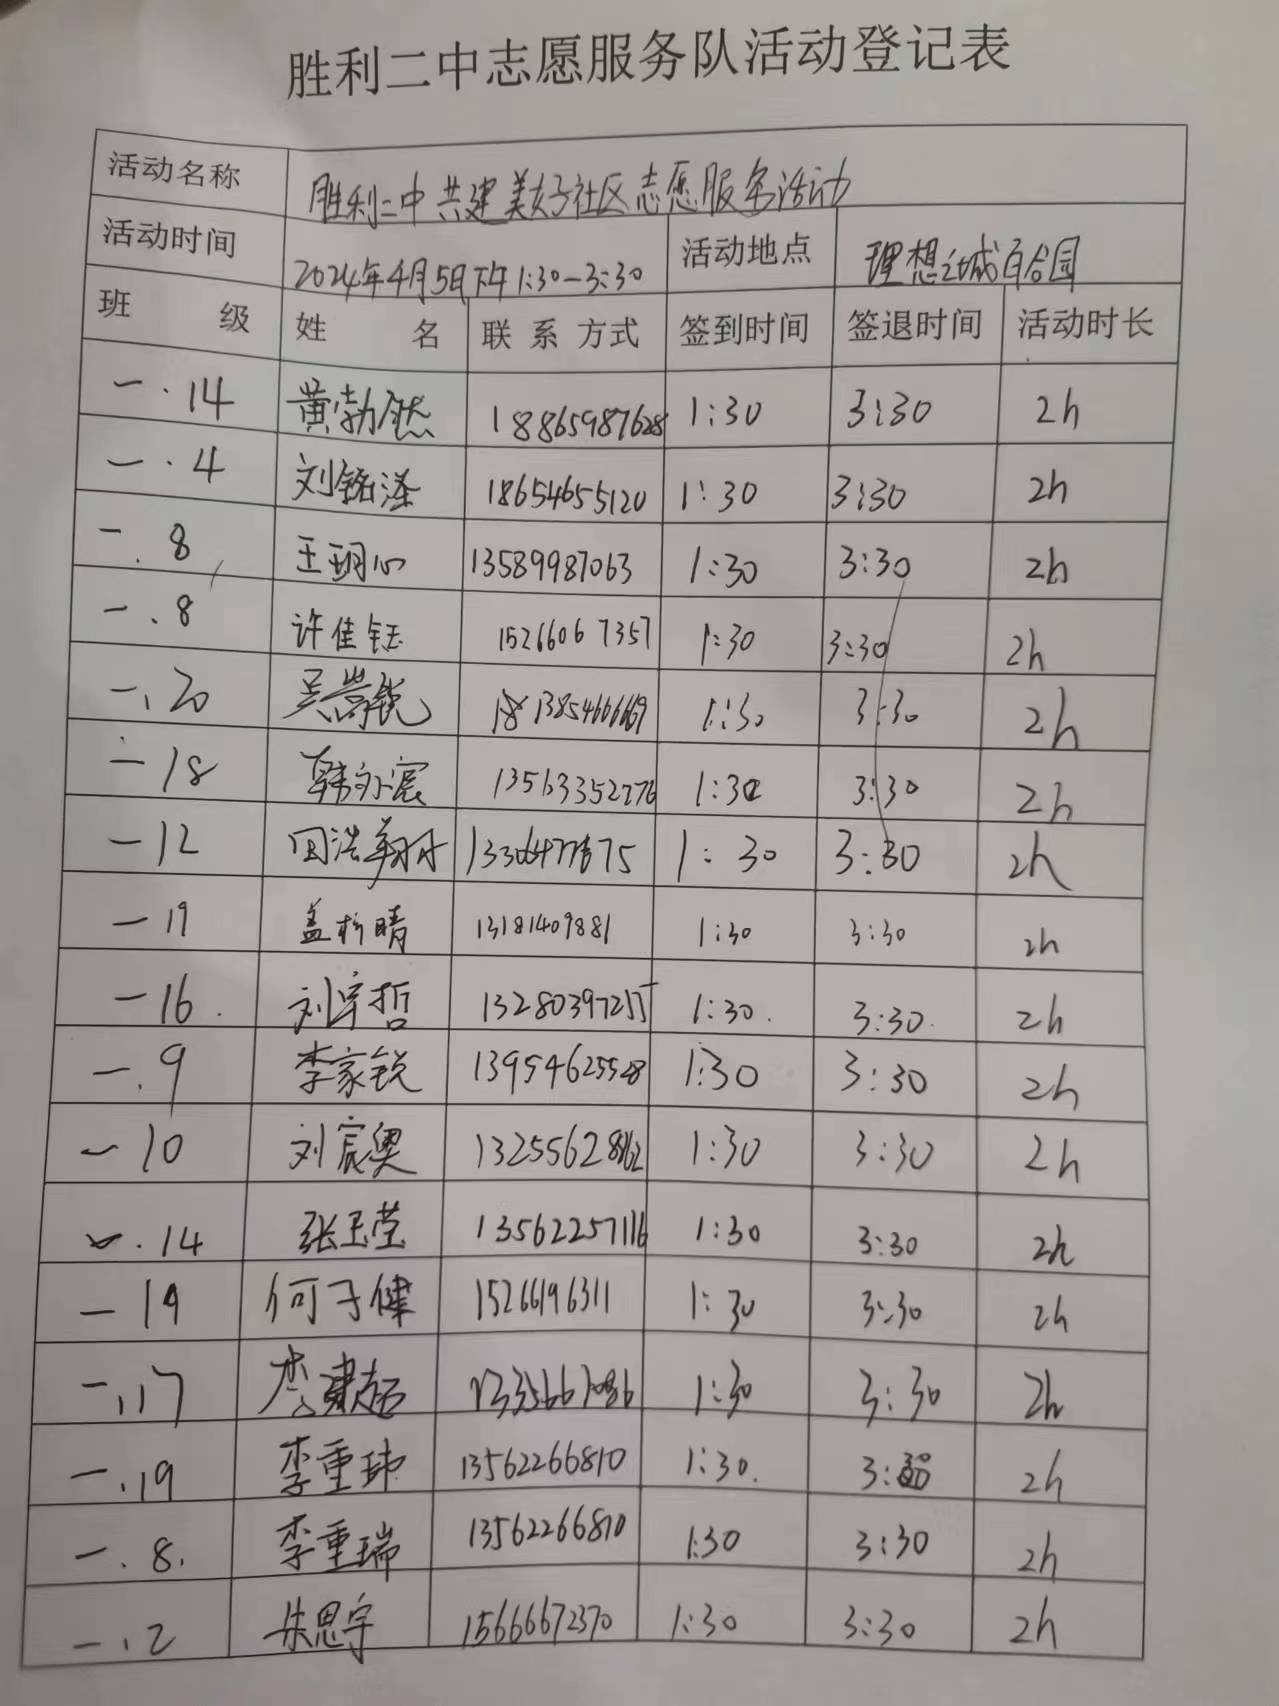 胜利二中志愿服务队活动登记表
活动名称 胜利二中共建美好社区志愿服务活动
活动时间 2024年4月5日下午1:30-3:30 活动地点 理想之城百合园
班 级 姓 名 联系方式 签到时间 签退时间 活动时长
一.14 黄勃然 18865987628 1:30 3:30 2h
一.4 刘铭泽 18654655120 1:30 3:30 2h
一.8 王玥心 13589987063 1:30 3:30 2h
一.8 许佳钰 15266067357 1:30 3:30 2h
一.20 吴 锐 1:30 3:30 2h
一18 韩 宸 13563352276 1:30 3:30 2h
一12 田浩 1:30 3:30 2h
一19 盖 晴 13181409881 1:30 3:30 2h
一16. 刘宇哲 13280397255 1:30. 3:30. 2h
一.9 李家锐 13954625528 1:30 3:30 2h
一10 刘宸奥 1:30 3:30 2h
一.14 张玉莹 13562257116 1:30 3:30 2h
一19 何子健 15266196311 1:30 3:30 2h
一.17 李建超 1:30 3:30 2h
一.19 李重玮 13562266810 1:30. 3:30 2h
一.8. 李重瑞 13562266810 1:30 3:30 2h
一.2 朱思宇 15666672370 1:30 3:30 2h